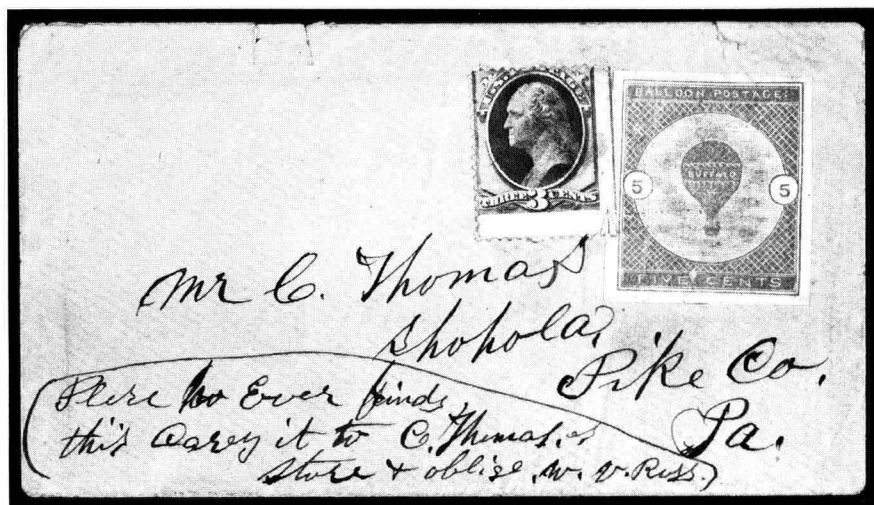 U.S. POSTAGE
THREE 3 CENTS
BALLOON POSTAGE
BUFFALO
5 5
FIVE CENTS
Mr C. Thomas
Shohola,
Pike Co.
Pa.
Plese ho Ever finds
this Carey it to C. Thomas, es
store + oblige. W. V. Russ.